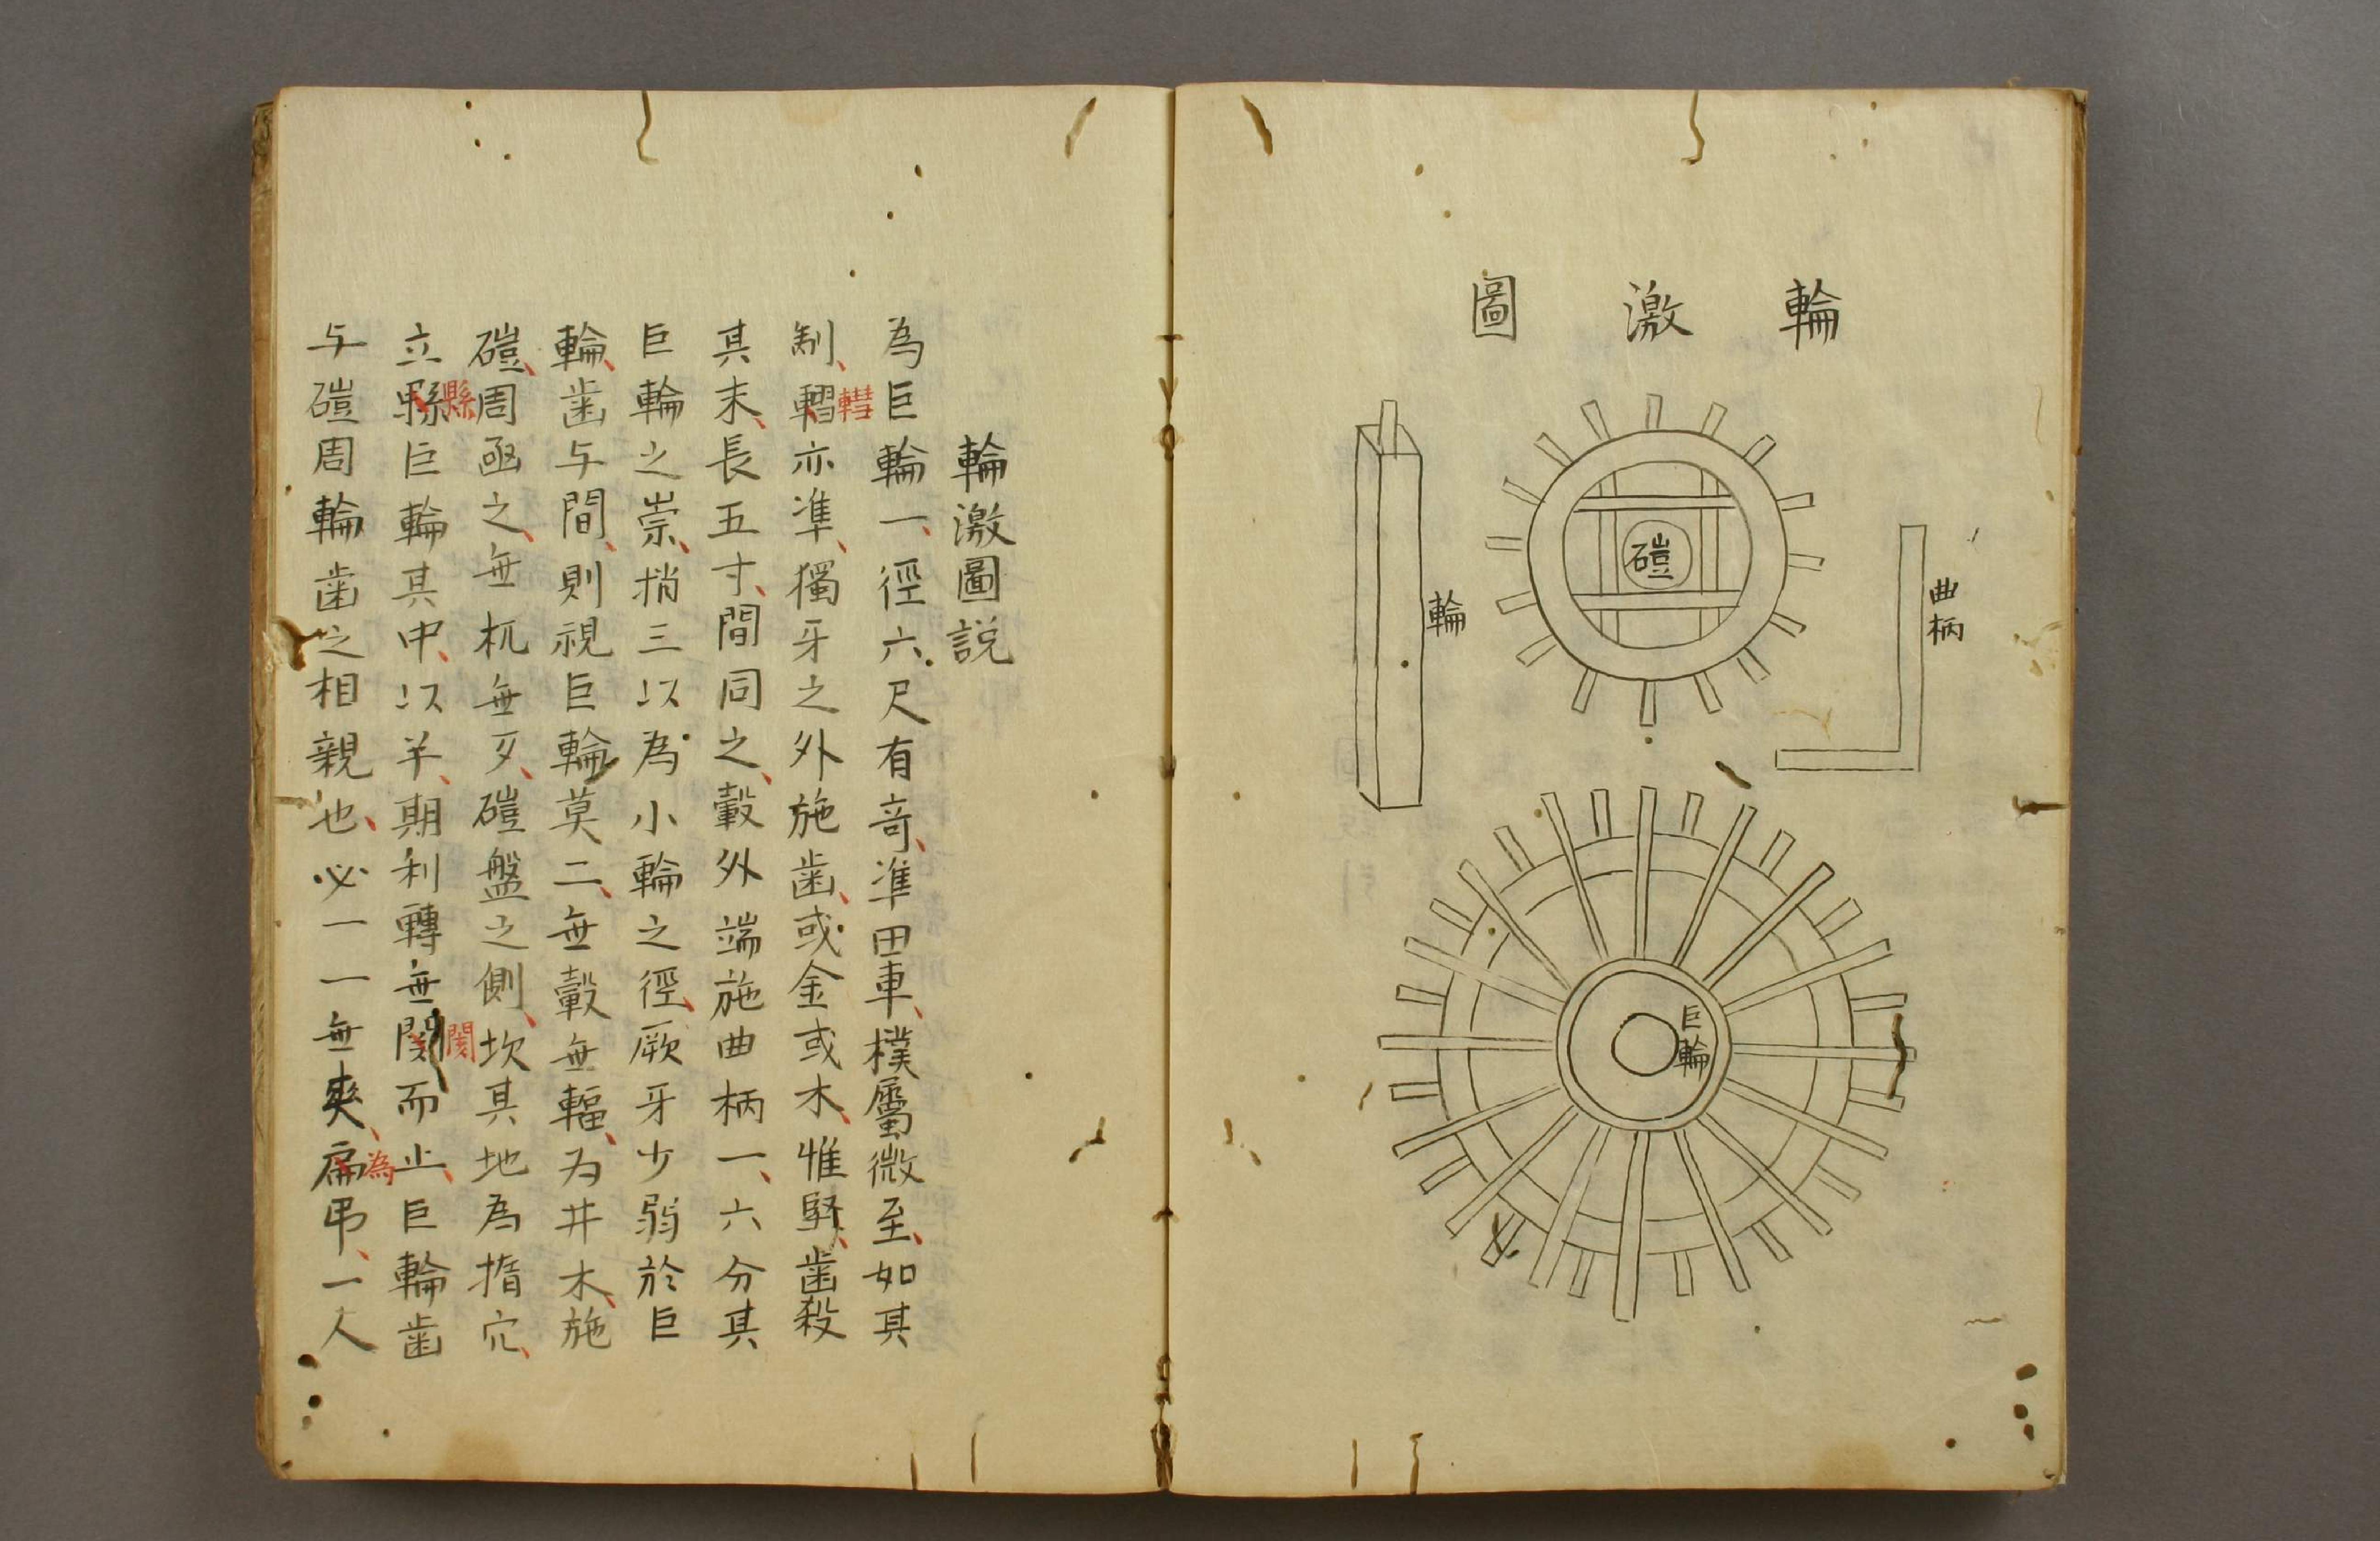 輪激圖
輪
磑
曲柄
巨輪
輪激圖説
為巨輪一、徑六尺有奇、準田車、樸屬微至、如其
制、轊亦準、獨牙之外施歯、或金或木、惟堅、歯殺
其末、長五寸、間同之、轂外端施曲柄一、六分其
巨輪之崇、捎三以為小輪之徑、厥牙少弱於巨
輪、歯与間、則視巨輪莫二、無轂無輻、为井木、施
磑、周函之、無杌無歹、磑盤之側、坎其地為揩穴、
立縣巨輪其中、以羊、期利轉無閡而止、巨輪歯
与磑周輪歯之相親也、必一一無爽、為弔、一人